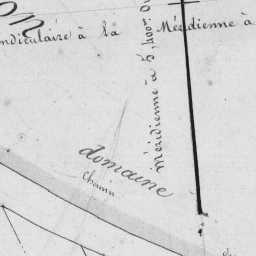 on
ndiculaire à la Méridienne à
méridienne à 5,400m
domaine
Chemin